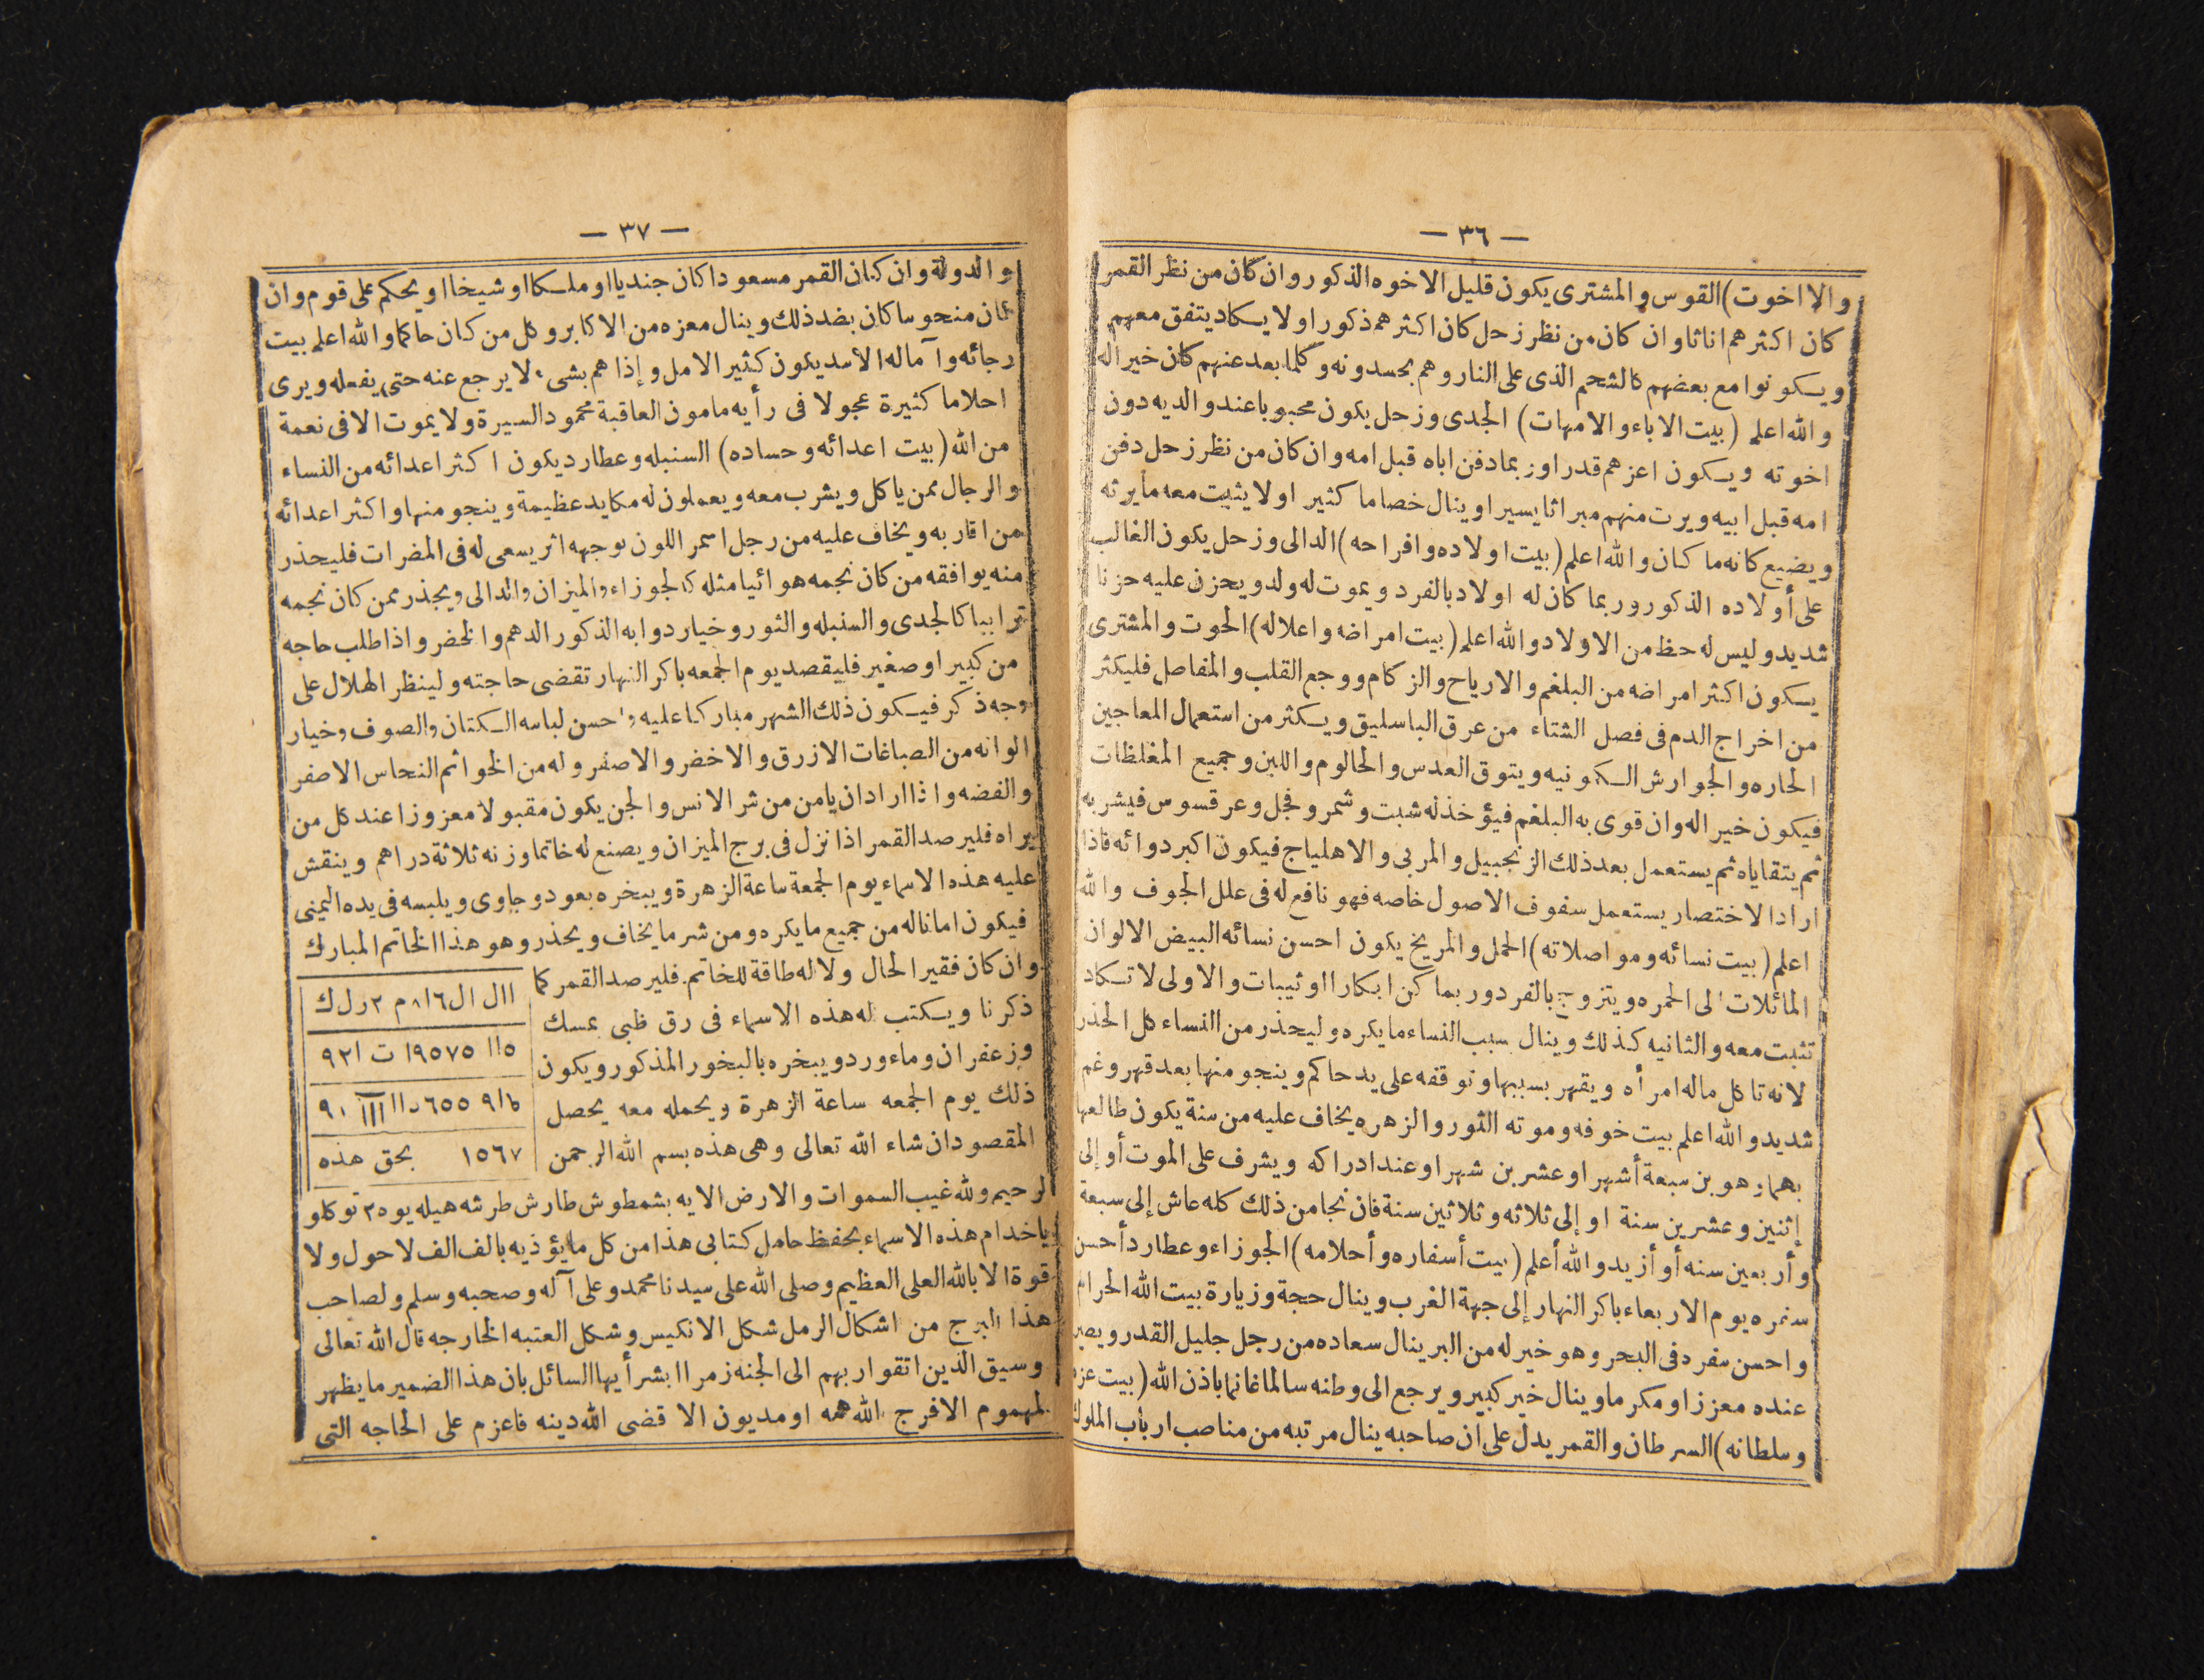 — ٣٦ —
والااخوت)القوس والمشترى يكون قليل الاخوه الذكور وان كان من نظر القمر
كان اكثرهم اناثا وان كان من نظر زحل كان اكثرهم ذكورا ولا يكاد يتفق معهم
ويكونوا مع بعضهم كالشحم الذى على النار وهم يحسدونه وكلما بعد عنهم كان خيرا له
والله اعلم (بيت الاباء والامهات) الجدى وزحل يكون محبوبا عند والديه دون
اخوته ويكون اعزهم قدرا وربما دفن اباه قبل امه وان كان من نظر زحل دفن
امه قبل ابيه ويرث منهم ميراثا يسيرا وينال خصاما كثيرا ولا يثبت معه مايرثه
ويضيع كانه ما كان والله اعلم (بيت اولاده وافراحه) الدالى وزحل يكون الغالب
على أولاده الذكور وربما كان له اولاد بالفرد ويموت له ولد ويحزن عليه حزنا
شديد وليس له حظ من الاولاد والله اعلم (بيت امراضه واعلاله) الحوت والمشترى
يكون اكثر امراضه من البلغم والارياح والزكام ووجع القلب والمفاصل فليكثر
من اخراج الدم فى فصل الشتاء من عرق الباسليق ويكثر من استعمال المعاجين
الحاره والجوارش الكمونيه ويتوق العدس والحالوم واللبن وجميع المغلظات
فيكون خيرا له وان قوى به البلغم فيؤخذ له شبت وشمر وفجل وعرقسوس فيشربه
ثم يتقاياه ثم يستعمل بعد ذلك الزنجبيل والمربى والاهلياج فيكون اكبر دوائه فاذا
اراد الاختصار يستعمل سفوف الاصول خاصه فهو نافع له فى علل الجوف والله
اعلم (بيت نسائه ومواصلاته) الحمل والمريخ يكون احسن نسائه البيض الالوان
المائلات الى الحمره ويتزوج بالفرد وربما كن ابكارا اوثيبات والاولى لا تكاد
تثبت معه والثانيه كذلك وينال سبب النساء مايكره وليحذر من النساء كل الحذر
لانه تاكل ماله امرأه ويقهر بسببها وتوقفه على يد حاكم وينجو منها بعد قهر وغم
شديد والله اعلم بيت خوفه وموته الثور والزهره يخاف عليه من سنة يكون طالعها
بهما وهو بن سبعة أشهر او عشرين شهرا وعند ادراكه ويشرف على الموت أو إلى
إثنين وعشرين سنة او إلى ثلاثه وثلاثين سنة فان نجا من ذلك كله عاش إلى سبعة
وأربعين سنه أو أزيد والله أعلم (بيت أسفاره وأحلامه) الجوزاء وعطارد أحسن
سفره يوم الاربعاء باكر النهار إلى جهة الغرب وينال حجة وزيارة بيت الله الحرام
واحسن سفره فى البحر وهو خير له من البر ينال سعاده من رجل جليل القدر ويصير
عنده معززا ومكرما وينال خير كبير ويرجع الى وطنه سالما غانما باذن الله (بيت عزه
وسلطانه) السرطان والقمر يدل على ان صاحبه ينال مرتبه من مناصب ارباب الملوك
— ٣٧ —
والدولة وان كان القمر مسعودا كان جنديا او ملكا او شيخا او يحكم على قوم وان
كان منحوسا كان بضد ذلك وينال معزه من الاكابر وكل من كان حاكما والله اعلم بيت
رجائه وآماله الاسد يكون كثير الامل وإذا هم بشىء لا يرجع عنه حتى يفعله ويرى
احلاما كثيرة عجولا فى رأيه مامون العاقبة محمود السيرة ولا يموت الا فى نعمة
من الله (بيت اعدائه وحساده) السنبله وعطارد يكون اكثر اعدائه من النساء
والرجال ممن ياكل ويشرب معه ويعملون له مكايد عظيمة وينجو منها واكثر اعدائه
من اقاربه ويخاف عليه من رجل اسمر اللون بوجهه اثر يسعى له فى المضرات فليحذر
منه يوافقه من كان نجمه هوائيا مثله كالجوزاء والميزان والدالى ويحذر ممن كان نجمه
ترابيا كالجدى والسنبله والثور وخيار دوابه الذكور الدهم والخضر واذا طلب حاجه
من كبير او صغير فليقصد يوم الجمعه باكر النهار تقضى حاجته ولينظر الهلال على
وجه ذكر فيكون ذلك الشهر مباركا عليه واحسن لباسه الكتان والصوف وخيار
الوانه من الصباغات الازرق والاخضر والاصفر وله من الخواتم النحاس الاصفر
والفضه واذا اراد ان يامن من شر الانس والجن يكون مقبولا معزوزا عند كل من
يراه فليرصد القمر اذا نزل فى برج الميزان ويصنع له خاتما وزنه ثلاثة دراهم وينقش
عليه هذه الاسماء يوم الجمعة ساعة الزهرة ويبخره بعود وجاوى ويلبسه فى يده اليمنى
فيكون امانا له من جميع مايكره ومن شر مايخاف ويحذر وهو هذا الخاتم المبارك
وان كان فقير الحال ولا له طاقة للخاتم فليرصد القمر كما
ذكرنا ويكتب له هذه الاسماء فى رق ظبى بمسك
وزعفران وماء ورد ويبخره بالبخور المذكور ويكون
ذلك يوم الجمعه ساعة الزهرة ويحمله معه يحصل
المقصود ان شاء الله تعالى وهى هذه بسم الله الرحمن
ااال ال ٨١٦ م ٢ ر ل ك
١١٥ ١٩٥٧٥ ت ٩٢١
١٥٦٧ بحق هذه
الرحيم ولله غيب السموات والارض الايه بشمطوش طارش طرشه هيله يوه ٢ توكلو
ياخدام هذه الاسماء بحفظ حامل كتابى هذا من كل مايؤذيه بالف الف لاحول ولا
قوة الا بالله العلى العظيم وصلى الله على سيدنا محمد وعلى آله وصحبه وسلم ولصاحب
هذا البرج من اشكال الرمل شكل الانكيس وشكل العتبه الخارجه قال الله تعالى
وسيق الذين اتقوا ربهم الى الجنه زمرا ابشر أيها السائل بان هذا الضمير مايظهر
لمهموم الافرج الله همه او مديون الا قضى الله دينه فاعزم على الحاجه التى